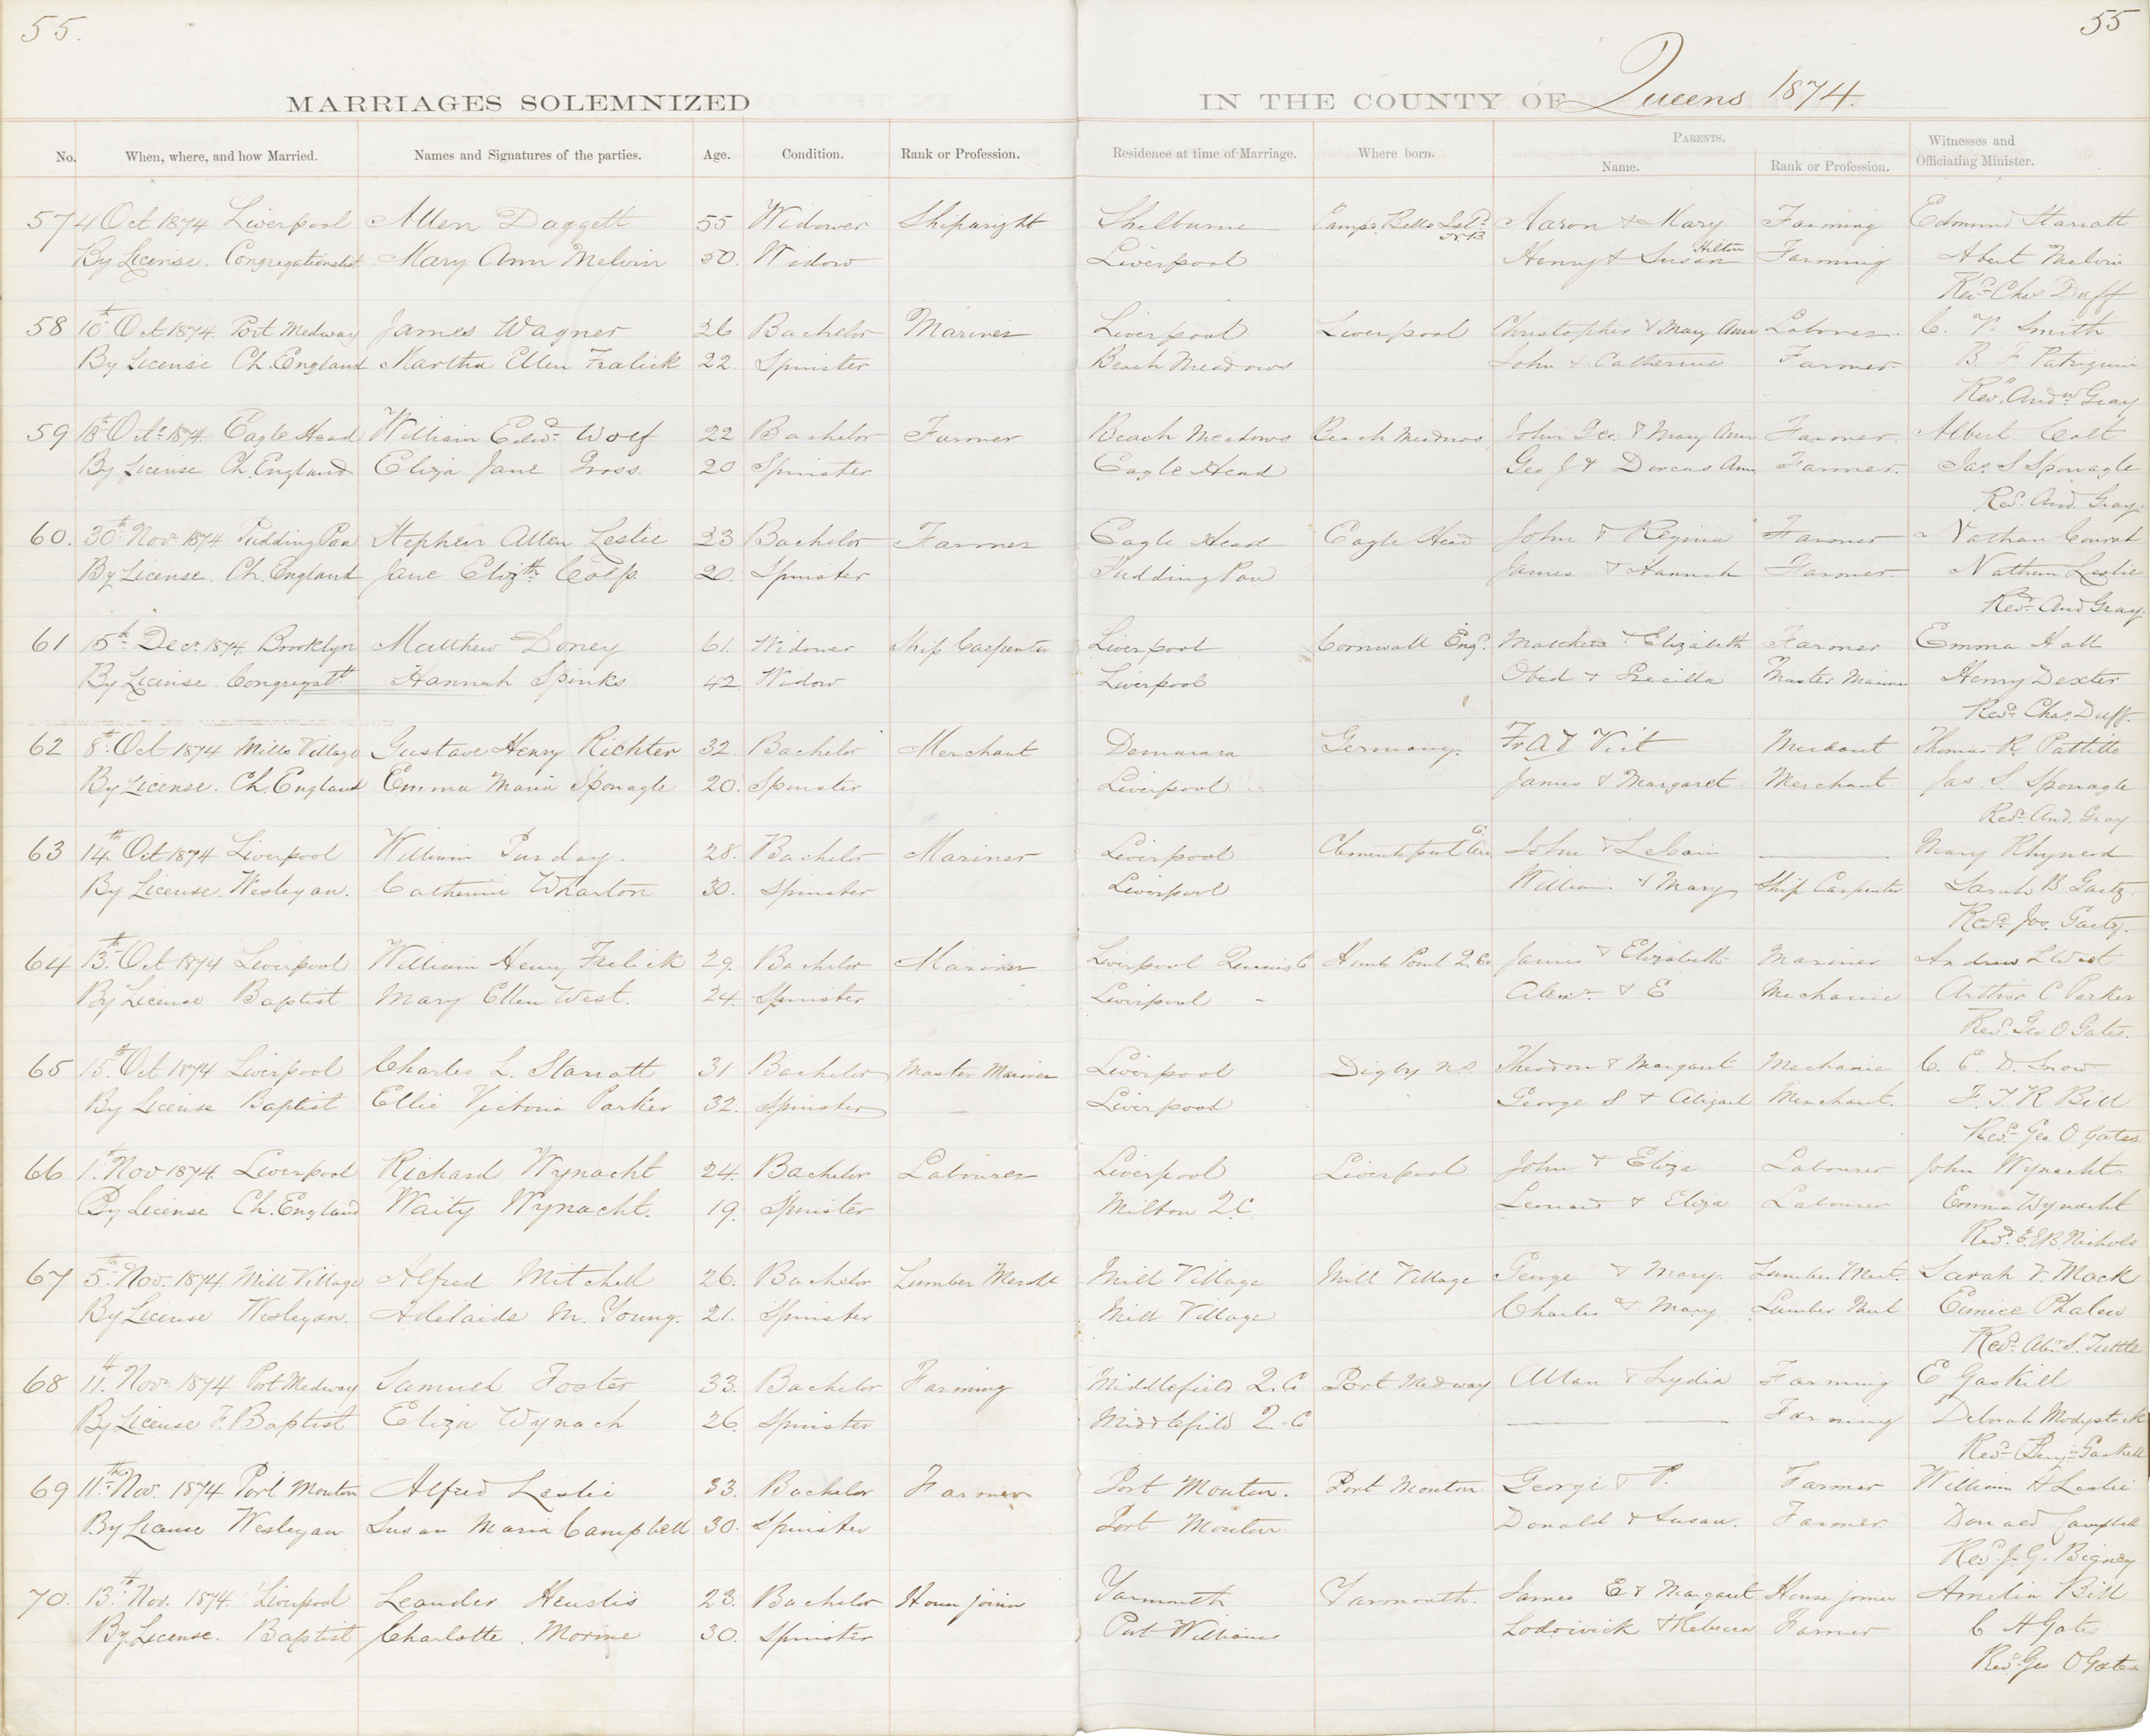 55. 55
MARRIAGES SOLEMNIZED IN THE COUNTY OF Queens 1874.
No. When, where, and how Married. Names and Signatures of the parties. Age. Condition. Rank or Profession. Residence at time of Marriage. Where born. PARENTS. Name. Rank or Profession. Witnesses and Officiating Minister.
57 4 Oct 1874 Liverpool Allen Daggett 55 Widower Shipwright Shelburne Campo Bello Isld N B Aaron & Mary Farming Edmund Starratt
By License. Congregationalist Mary Ann Melvin 50. Widow Liverpool Henry & Susan Farming Albert Melvin
Revd Chas Duff
58 10th Oct 1874. Port Medway James Wagner 26 Bachelor Mariner Liverpool Liverpool Christopher & Mary Ann Laborer. C. Smith
By License Ch. England Martha Ellen Fralick 22. Spinster Beach Meadows John & Catherine Farmer. B. F
Revd Andw Gray
59 18th Octr 1874 Eagle Head William Edwd Wolf 22 Bachelor Farmer Beach Meadows Beach Meadows John Geo. & Mary Ann Farmer. Albert Colt
By License Ch. England Eliza Jane Gross. 20 Spinster Eagle Head Geo J & Dorcas Ann Farmer. Jas. S Sponagle
Revd And. Gray
60. 30th Novr 1874 Pudding Pan Stephen Allen Leslie 23 Bachelor Farmer Eagle Head Eagle Head John & Regina Farmer Nathan Conrad
By License. Ch. England Jane Elizth Colp. 20. Spinster Pudding Pan James & Hannah Farmer. Nathan Leslie
Revd And Gray
61 15th Decr. 1874. Brooklyn Matthew Doney 61. Widower Ship Carpenter Liverpool Cornwall Engd. Matthew & Elizabeth Farmer Emma Hall
By License. Congregatl Hannah Spinks 42 Widow Liverpool Obed & Precilla Master Mariner Henry Dexter
Revd Chas. Duff.
62 8th Oct 1874 Mills Village Gustave Henry Richter 32. Bachelor Merchant Demarara Germany. Merchant Thomas R. Pattillo
By License. Ch. England Emma Maria Sponagle 20. Spinster Liverpool James & Margaret Merchant Jas. S. Sponagle
Revd And. Gray
63 14th Oct 1874 Liverpool William Purday. 28. Bachelor Mariner Liverpool Clementsport An. C. John & Mary Rhynard
By License. Wesleyan. Catherine Wharton 30. Spinster Liverpool William & Mary Ship Carpenter Sarah B Gaetz.
Revd Jos. Gaetz.
64 13th Oct 1874 Liverpool William Henry Frelick 29. Bachelor Mariner Liverpool Queens C Hunts Point Q. Co James & Elizabeth Mariner Andrew L West
By License Baptist Mary Ellen West. 24. Spinster Liverpool " Alexr. & E Mechanic Arthur C Parker
Revd. Geo O Gates.
65 15th Oct 1874 Liverpool Charles L. Starratt 31 Bachelor Master Mariner Liverpool Digby N.S. Theodore & Margaret Mechanic C. E. D. Snow
By License Baptist Ellie Victoria Parker 32. Spinster Liverpool George S & Abigail Merchant. F. T. R Bill
Revd Geo. O Gates.
66 1st Nov 1874. Liverpool Richard Wynacht 24. Bachelor Labourer Liverpool Liverpool John & Eliza Labourer John Wynacht.
By License Ch. England Waity Wynacht. 19. Spinster Milton Q.C. Leonard & Eliza Labourer Emma Wynacht
Revd. E.E.B. Nichols
67 5th Nov. 1874. Mill Village Alfred Mitchell 26. Bachelor Lumber Mercht Mill Village Mill Village George & Mary. Lumber Mert. Sarah V. Mack
By License Wesleyan. Adelaide M. Young. 21. Spinster Mill Village Charles & Mary Lumber Mert Eunice Phalen
Revd. Alexr. S. Tuttle
68 11th Novr 1874 Port Medway Samuel Foster 33. Bachelor Farming Middlefield Q. C Port Medway Allan & Lydia Farming E Gaskill
By License F. Baptist Eliza Wynach 26. Spinster Middlefield Q. C Farming Deborah
Revd Benjn Gaskill
69 11th Nov. 1874 Port Mouton Alfred Leslie 33. Bachelor Farmer Port Mouton. Port Mouton George & P. Farmer William H Leslie
By License Wesleyan Susan Maria Campbell 30. Spinster Port Mouton Donald & Susan. Farmer Donald Campbell
Revd. J. G. Bigney
70. 13th Nov. 1874. Liverpool Leander Heustis 23. Bachelor House joiner Yarmouth Yarmouth. James E & Margaret House joiner Amelia Bill
By License. Baptist Charlotte Morine 30. Spinster Port Williams Lodovick & Rebecca Farmer C H Gates
Revd. Geo O Gates